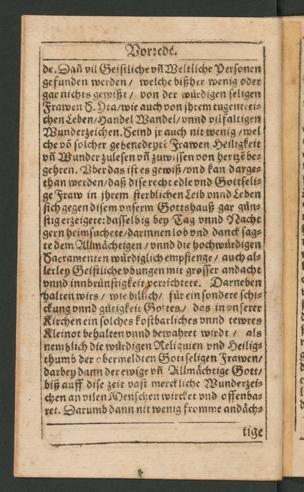 Vorrede.
de. Dañ vil Geistliche vñ Weltliche Personen
gefunden werden / welche bißher wenig oder
gar nichts gewißt / von der würdigen seligen
Frawen S. Ita / wie auch von jhrem tugentrei-
chen Leben / Handel Wandel / vnnd vilfaltigen
Wunderzeichen. Seind jr auch nit wenig / wel
che võ solcher gebenedeyte Frawen Heiligkeit
vñ Wunder zulesen vñ zuwissen von hertzẽ be-
gehren. Vber das ist es gewiß / vnd kan darge-
than werden / daß dise recht edle vnd Gottseli-
ge Fraw in jhrem sterblichen Leib vnnd Leben
sich gegen disem vnserm Gottshauß gar güns
stig erzeigete: dasselbig bey Tag vnnd Nacht
gern heimsuchete / darinnen lob vnd danck sag-
te dem Allmächtigen / vnnd die hochwürdigen
Sacramenten würdiglich empfienge / auch al-
lerley Geistliche vbungen mit grosser andacht
vnnd innbrünstigkeit verrichtete. Darneben
halten wirs / wie billich / für ein sondere schi-
ckung vnnd gütigkeit Gottes / das in vnserer
Kirchen ein solches kostbarliches vnnd tewres
Kleinot behalten vnnd bewahret wirdt / als
nemblich die würdigen Reliquien vnd Heilig-
thumb der obermeldten Gottseligen Frawen /
darbey dann der ewige vñ Allmächtige Gott /
biß auff dise zeit vast merckliche Wunderzei-
chen an vilen Menschen wircket vnd offenba-
ret. Darumb dann nit wenig fromme andäch-
tige